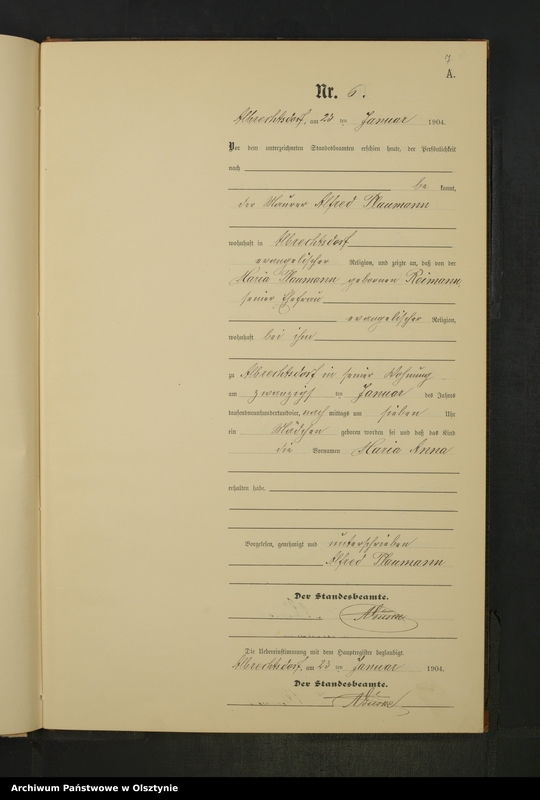 7
A.
Nr. 6.
Albrechtsdorf, am 23 ten Januar 1904.
Vor dem unterzeichneten Standesbeamten erschien heute, der Persönlichkeit
nach
be kannt,
der Maurer Alfred Naumann
wohnhaft in Albrechtsdorf
evangelischer Religion, und zeigte an, daß von der
Maria Naumann gebornen Reimann,
seiner Ehefrau
evangelischer Religion,
wohnhaft bei ihm
zu Albrechtsdorf in seiner Wohnung
am zwanzigst ten Januar des Jahres
tausendneunhundert nach mittags um sieben Uhr
ein Mädchen geboren worden sei und daß das Kind
die Vornamen Maria Anna
erhalten habe.
Vorgelesen, genehmigt und unterschrieben
Alfred Naumann
Der Standesbeamte.
Die Uebereinstimmung mit dem Hauptregister beglaubigt.
Albrechtsdorf, am 23 ten Januar 1904.
Der Standesbeamte.
Archiwum Państwowe w Olsztynie